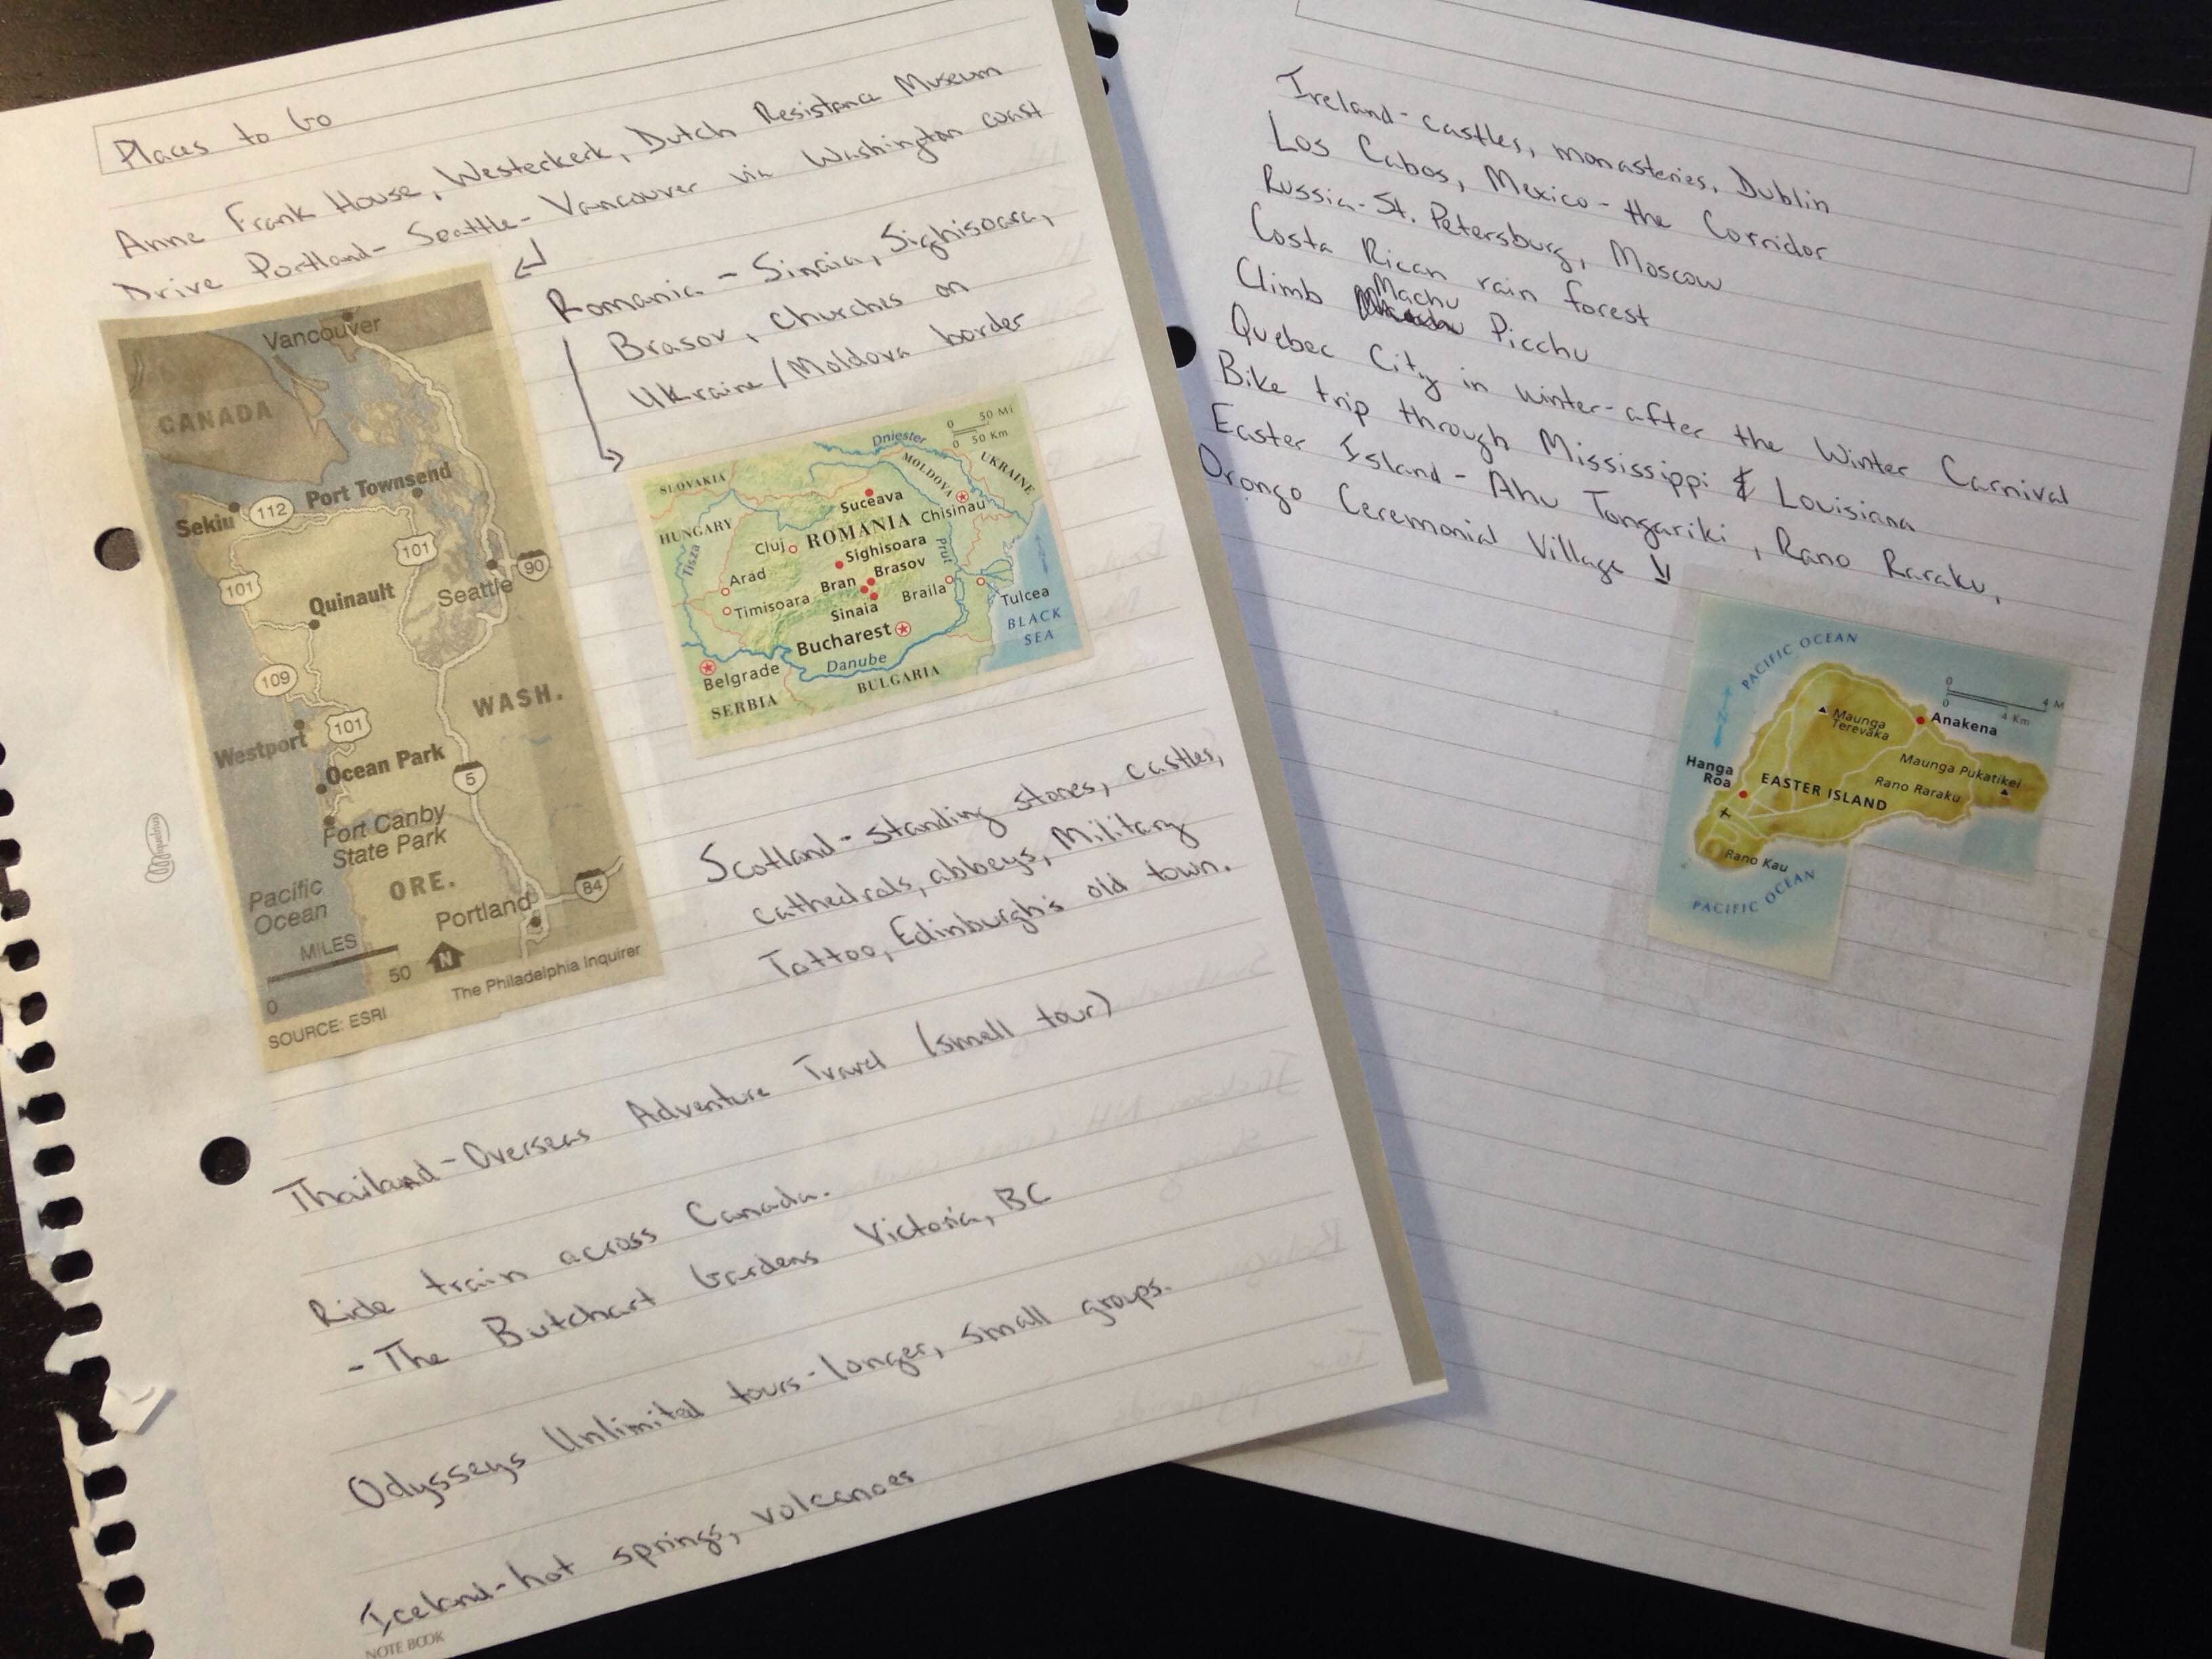 Places to Go
Anne Frank House, Westerkerk, Dutch Resistance Museum
Drive Portland - Seattle - Vancouver via Washington coast
Romania - Sinaia, Sighisoara,
Brasov, churches on
Ukraine/Moldova border
Vancouver
CANADA
Port Townsend
Sekiu
112
101
101
90
Seattle
Quinault
109
WASH.
101
Westport
Ocean Park
5
Fort Canby
State Park
ORE.
84
Portland
Pacific
Ocean
MILES
0 50
N
The Philadelphia Inquirer
SOURCE: ESRI
0 50 Mi
0 50 Km
Dniester
SLOVAKIA
MOLDOVA
UKRAINE
HUNGARY
Suceava
ROMANIA
Chisinau
Tisza
Cluj
Sighisoara
Prut
Arad
Bran
Brasov
Timisoara
Sinaia
Braila
Tulcea
BLACK
SEA
Bucharest
Belgrade
Danube
SERBIA
BULGARIA
Scotland - standing stones, castles,
cathedrals, abbeys, Military
Tattoo, Edinburgh's old town.
Thailand - Overseas Adventure Travel (small tour)
Ride train across Canada.
- The Butchart Gardens Victoria, BC
Odysseys Unlimited tours - longer, small groups.
Iceland - hot springs, volcanoes
NOTE BOOK
Miquelrius
Ireland - castles, monasteries, Dublin
Los Cabos, Mexico - the Corridor
Russia - St. Petersburg, Moscow
Costa Rican rain forest
Climb Machu Picchu
Quebec City in winter - after the Winter Carnival
Bike trip through Mississippi & Louisiana
Easter Island - Ahu Tongariki, Rano Raraku,
Orongo Ceremonial Village
PACIFIC OCEAN
N
0 4 M
0 4 Km
Maunga
Terevaka
Anakena
Maunga Pukatikei
Hanga
Roa
EASTER ISLAND
Rano Raraku
Rano Kau
PACIFIC OCEAN